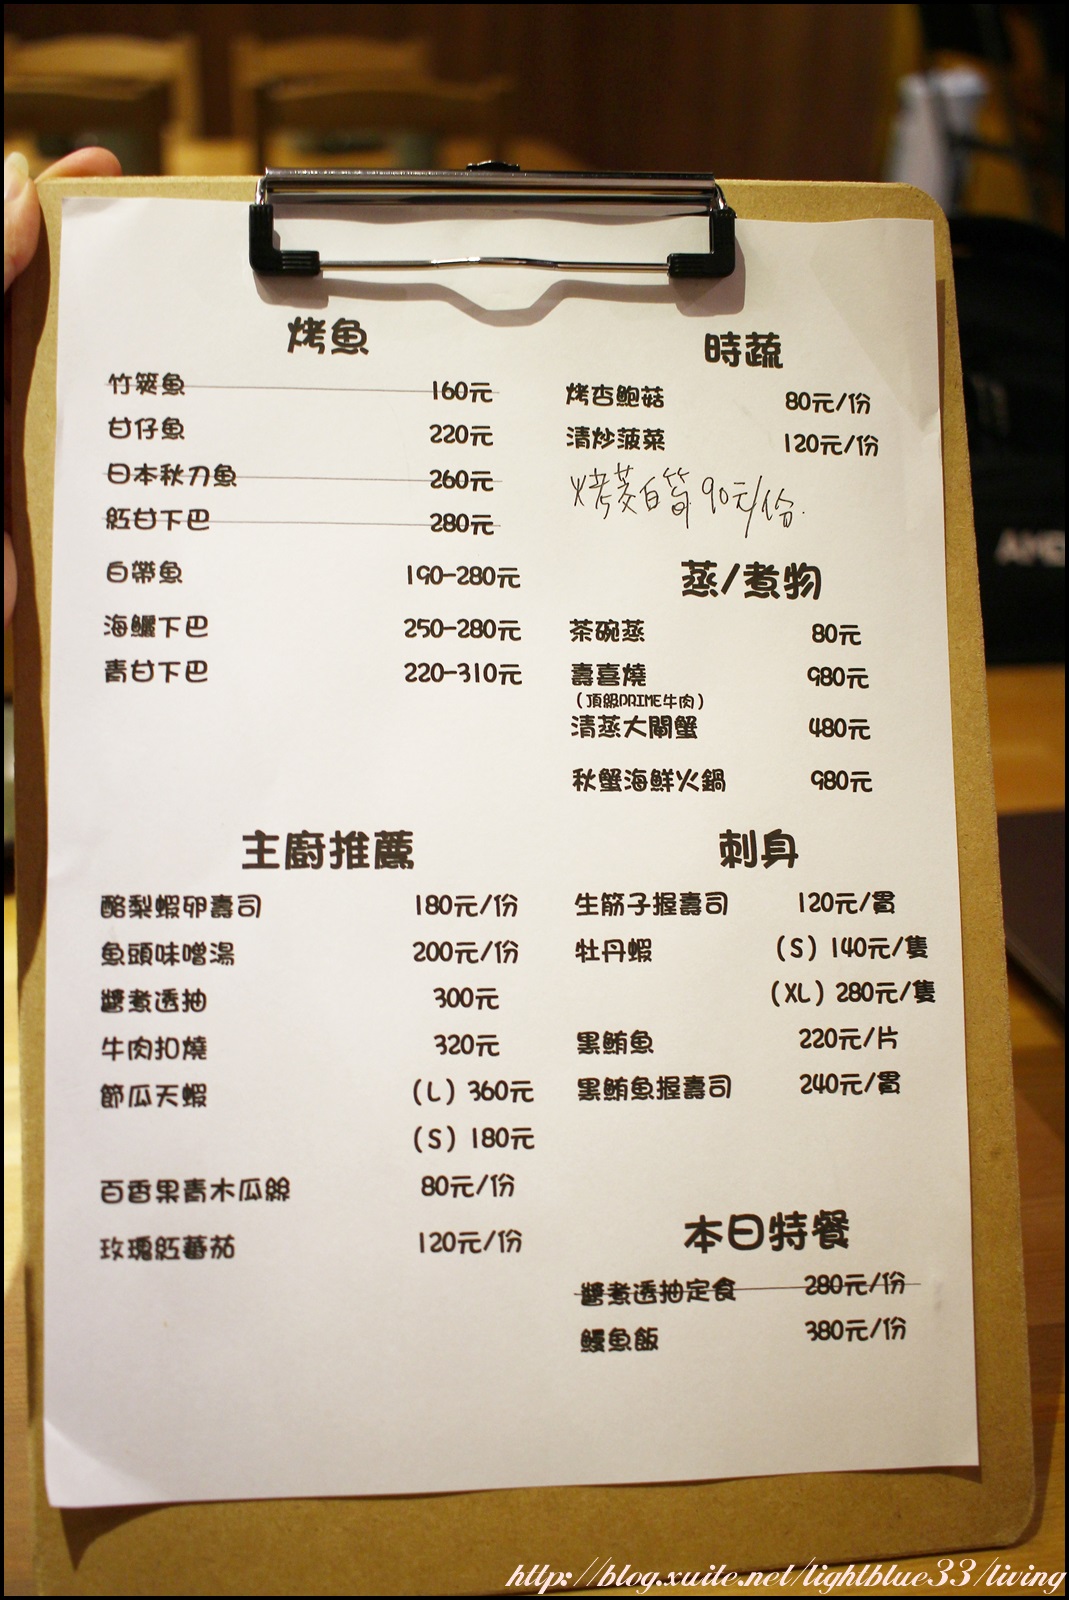 烤魚
竹筴魚 160元
甘仔魚 220元
日本秋刀魚 260元
紅甘下巴 280元
白帶魚 190-280元
海鱺下巴 250-280元
青甘下巴 220-310元
時蔬
烤杏鮑菇 80元/份
清炒菠菜 120元/份
烤茭白筍 90元/份.
蒸/煮物
茶碗蒸 80元
壽喜燒 980元
(頂級PRIME牛肉)
清蒸大閘蟹 480元
秋蟹海鮮火鍋 980元
主廚推薦
酪梨蝦卵壽司 180元/份
魚頭味噌湯 200元/份
醬煮透抽 300元
牛肉扣燒 320元
節瓜天蝦 (L) 360元
(S) 180元
百香果青木瓜絲 80元/份
玫瑰紅蕃茄 120元/份
刺身
生筋子握壽司 120元/貫
牡丹蝦 (S) 140元/隻
(XL) 280元/隻
黑鮪魚 220元/片
黑鮪魚握壽司 240元/貫
本日特餐
醬煮透抽定食 280元/份
鰻魚飯 380元/份
AMD
http://blog.xuite.net/lightblue33/living